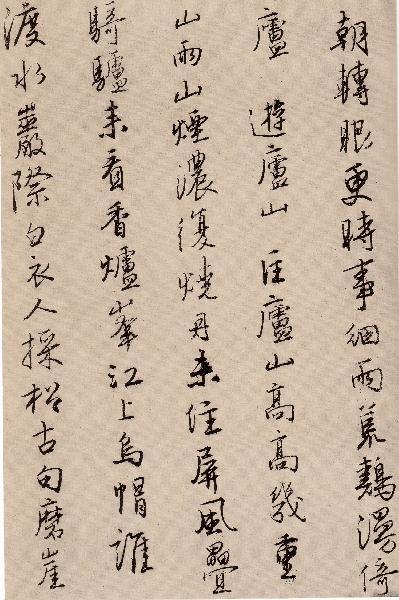 朝轉眼更時事細雨荒鷄漫倚
廬 遊廬山 匡廬山高高幾重
山雨山煙濃復燒丹來住屏風疊
騎驢來看香爐峯江上烏帽誰
渡水巖際白衣人採松古句磨崖